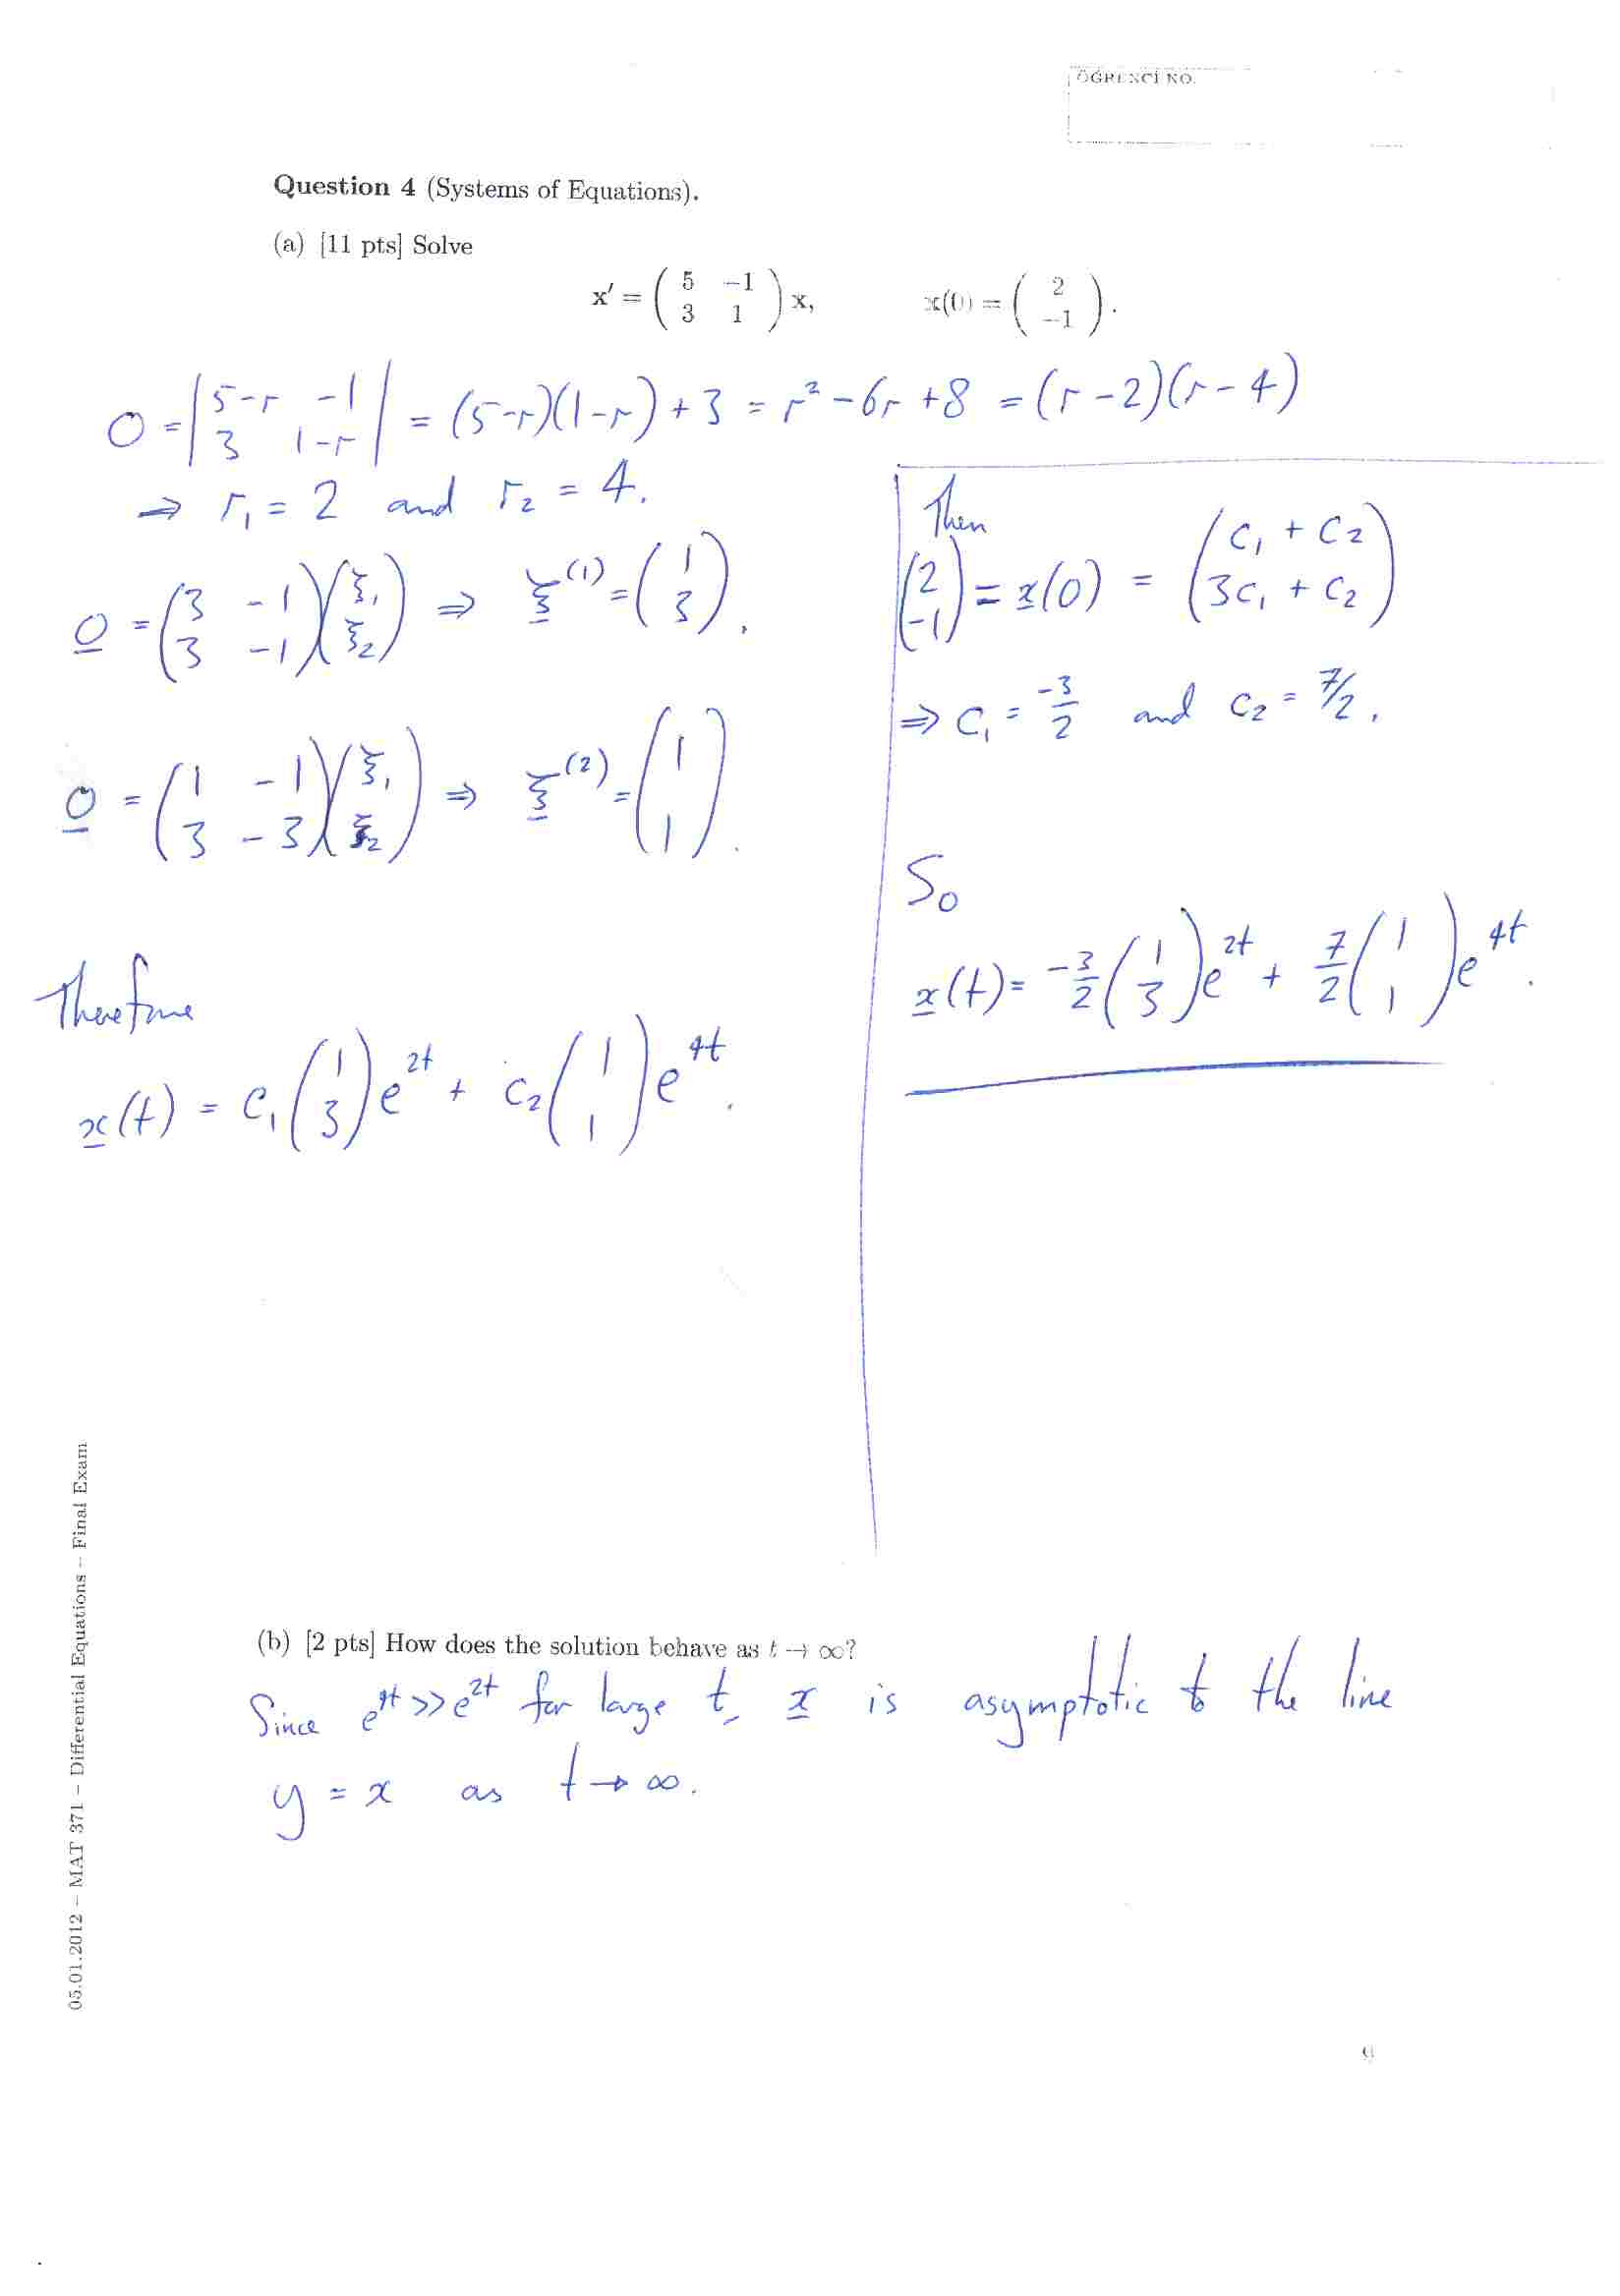 ÖĞRENCİ NO.
Question 4 (Systems of Equations).
(a) [11 pts] Solve
x′ = ( 5 −1 ; 3 1 ) x, x(0) = ( 2 ; −1 ).
0 = | 5-r -1 ; 3 1-r | = (5-r)(1-r) + 3 = r² - 6r + 8 = (r-2)(r-4)
⇒ r₁ = 2 and r₂ = 4.
0 = ( 3 -1 ; 3 -1 )( ξ₁ ; ξ₂ ) ⇒ ξ⁽¹⁾ = ( 1 ; 3 ).
0 = ( 1 -1 ; 3 -3 )( ξ₁ ; ξ₂ ) ⇒ ξ⁽²⁾ = ( 1 ; 1 ).
Therefore
x(t) = c₁ ( 1 ; 3 ) e^2t + c₂ ( 1 ; 1 ) e^4t.
Then
( 2 ; -1 ) = x(0) = ( c₁ + c₂ ; 3c₁ + c₂ )
⇒ c₁ = -3/2 and c₂ = 7/2.
So
x(t) = -3/2 ( 1 ; 3 ) e^2t + 7/2 ( 1 ; 1 ) e^4t.
(b) [2 pts] How does the solution behave as t → ∞?
Since e^4t >> e^2t for large t, x is asymptotic to the line
y = x as t → ∞.
05.01.2012 – MAT 371 – Differential Equations – Final Exam